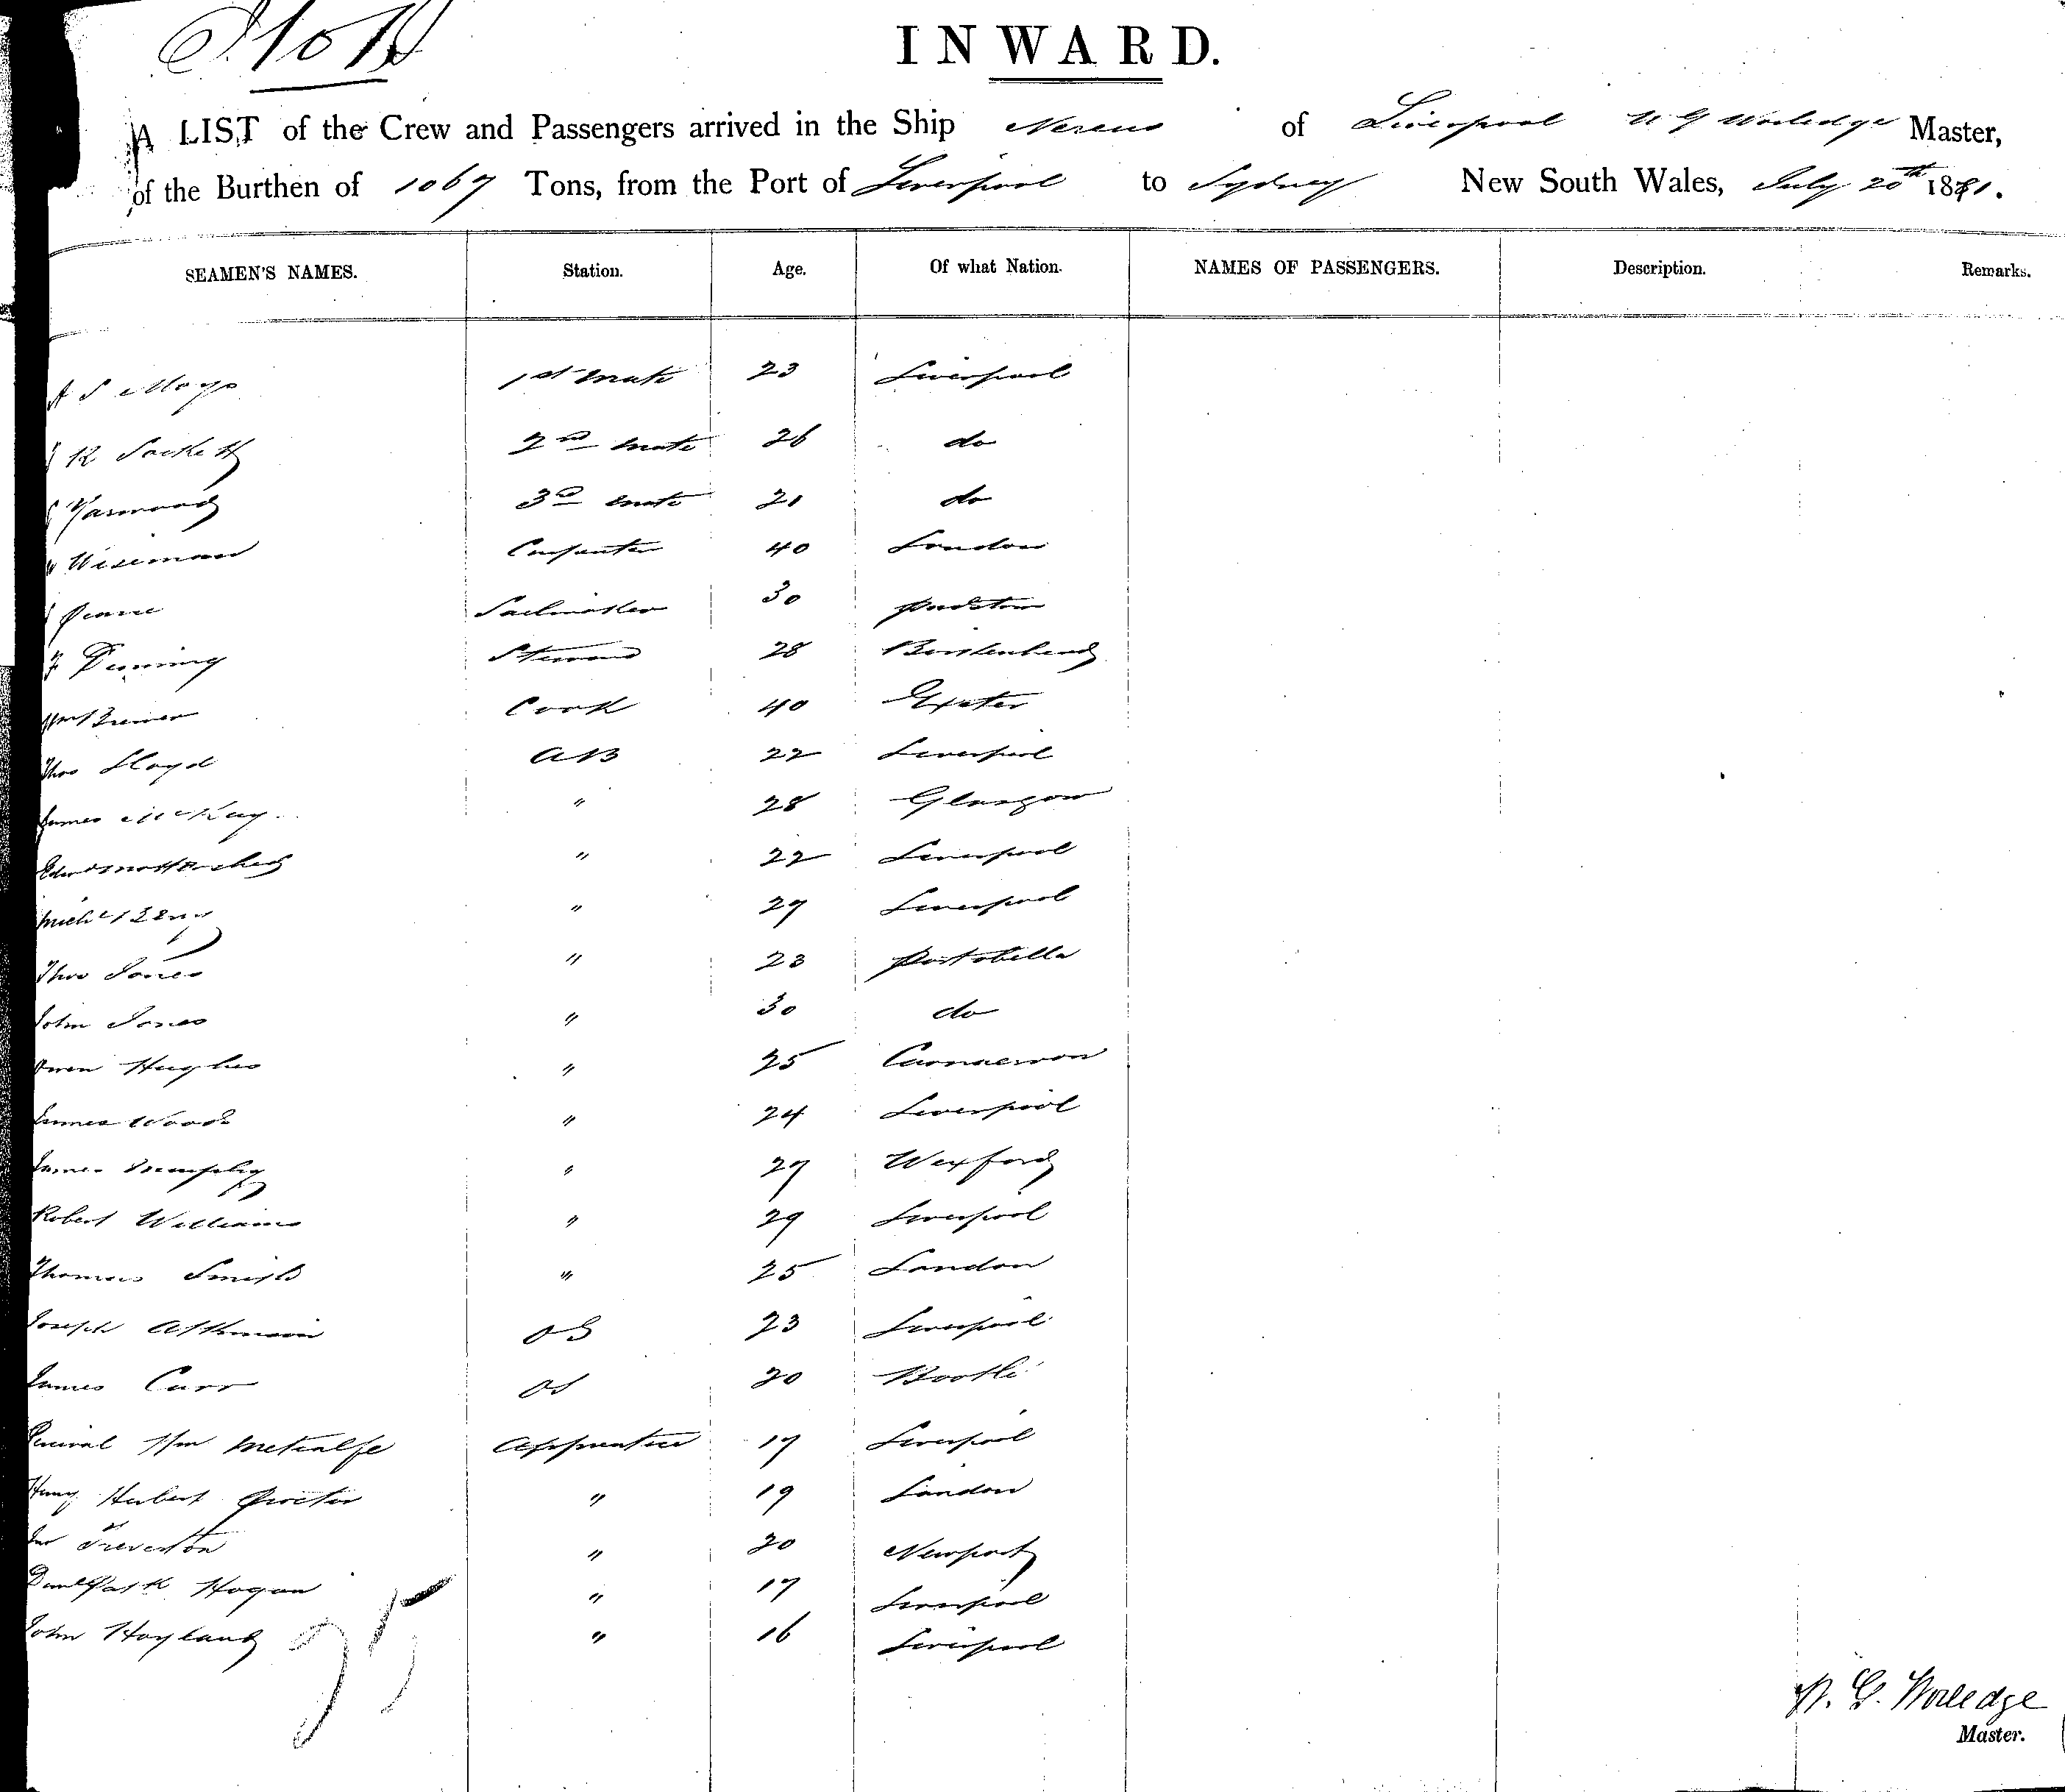 INWARD.
A LIST of the Crew and Passengers arrived in the Ship Nereus of Liverpool W G Worledge Master,
of the Burthen of 1067 Tons, from the Port of Liverpool to Sydney New South Wales, July 20th 1881.
SEAMEN'S NAMES. Station. Age. Of what Nation. NAMES OF PASSENGERS. Description. Remarks.
S 1st Mate 23 Liverpool
R Sockett 2nd Mate 26 do
Yarwood 3rd Mate 21 do
Wiseman Carpenter 40 London
Sailmaker 30
Steward 28 Birkenhead
Cook 40 Exeter
Thos Lloyd AB 22 Liverpool
James McKay " 28 Glasgow
" 22 Liverpool
" 27 Liverpool
Thos Jones " 23 Portobella
John Jones " 30 do
Owen Hughes " 25 Carnaervon
James Woods " 24 Liverpool
James " 27 Wexford
Robert Williams " 29 Liverpool
Thomas Smith " 25 London
Joseph OS 23 Liverpool
James Carr OS 20 Bootle
Percival Wm Metcalfe Apprentice 17 Liverpool
Henry Hubert Procter " 19 London
Treverton " 20 Newport
Hogan " 17 Liverpool
John Hoyland " 16 Liverpool
25
W. G. Worledge
Master.